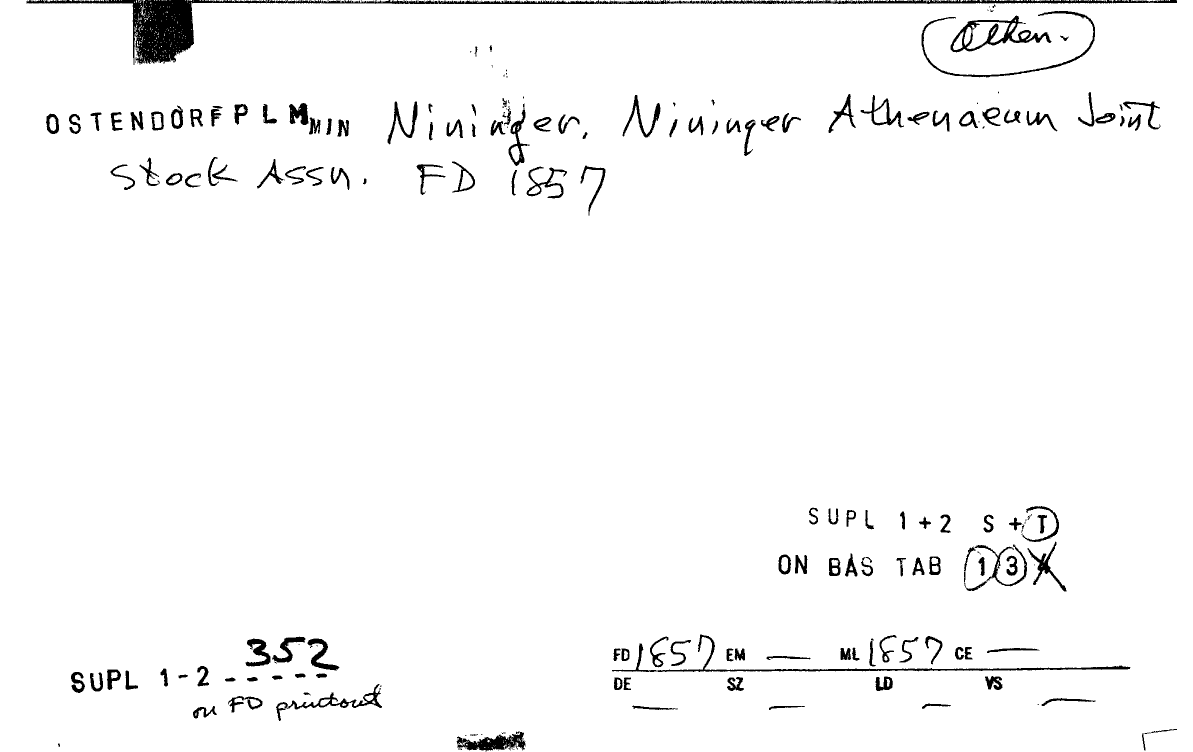 Athen.
OSTENDORF P L M MIN Nininger. Nininger Athenaeum Joint
Stock Assn. FD 1857
SUPL 1+2 S+T
ON BAS TAB 1 3
352
SUPL 1-2 -----
on FD printout
FD 1857 EM — ML 1857 CE —
DE SZ LD VS
— — — —